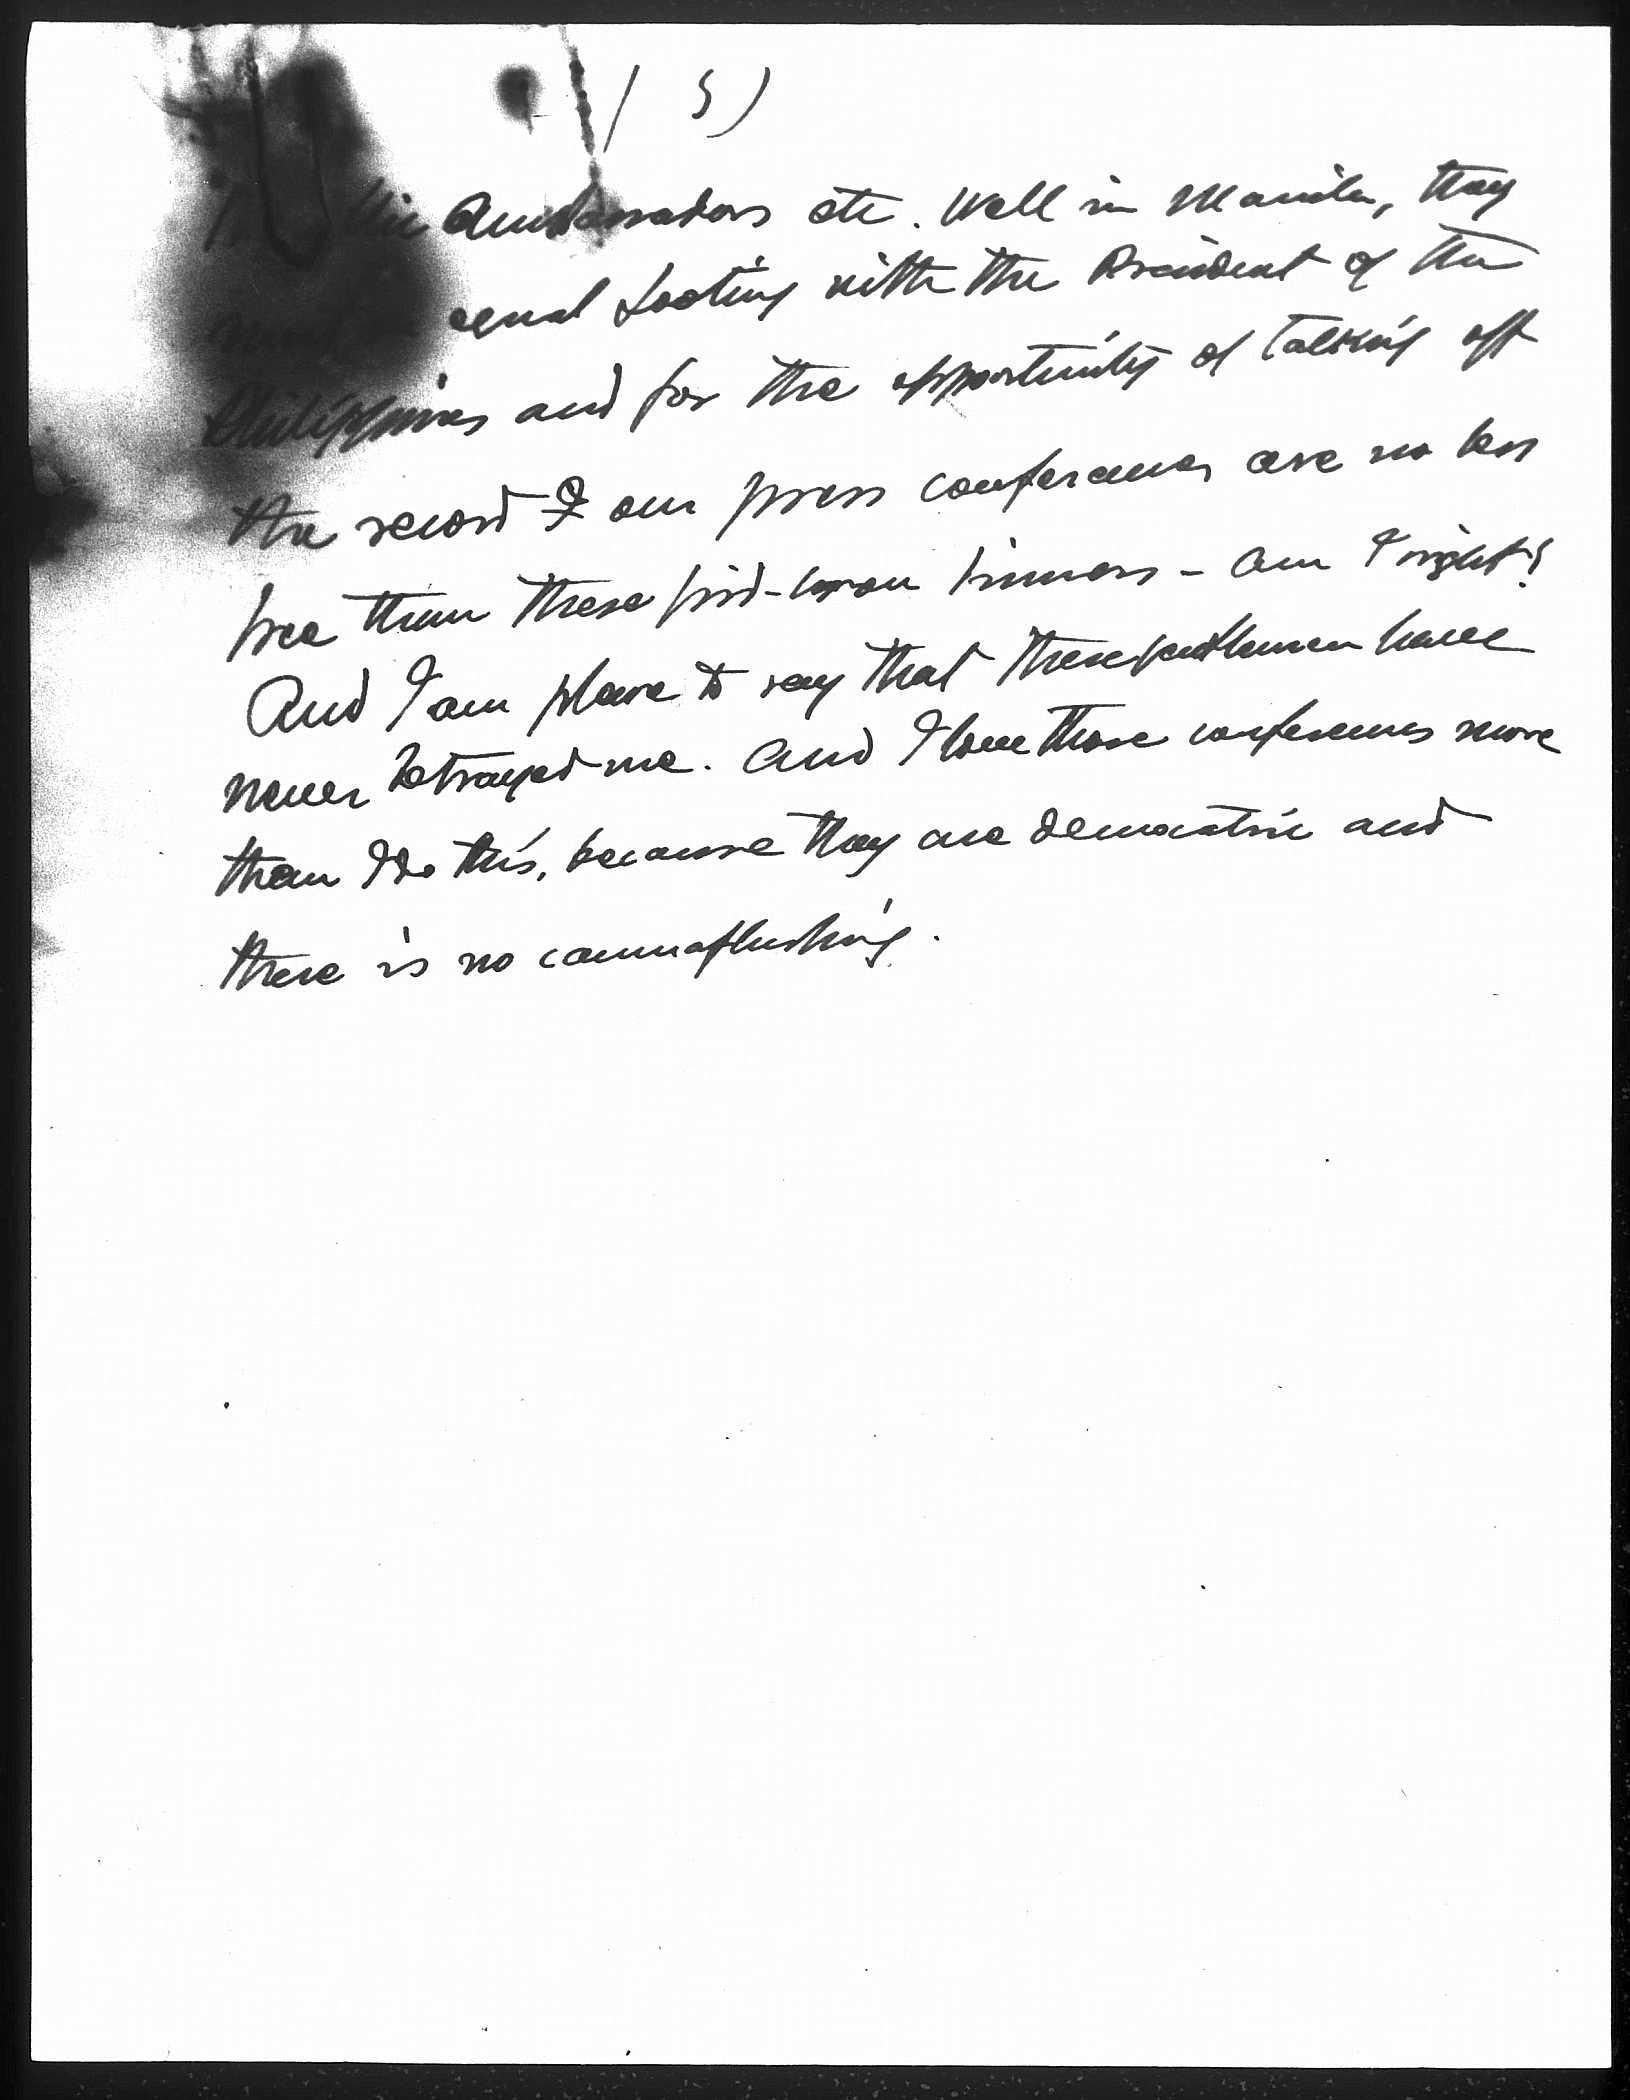 ( 5 )
Ambassadors etc. Well in Manila, they
equal footing with the President of the
Philippines and for the opportunity of talking off
the record I our press conferences are no less
free than these grid-iron dinners - am I right?
And I am please to say that these gentlemen have
never betrayed me. And I love those conferences more
than I do this, because they are democratic and
there is no